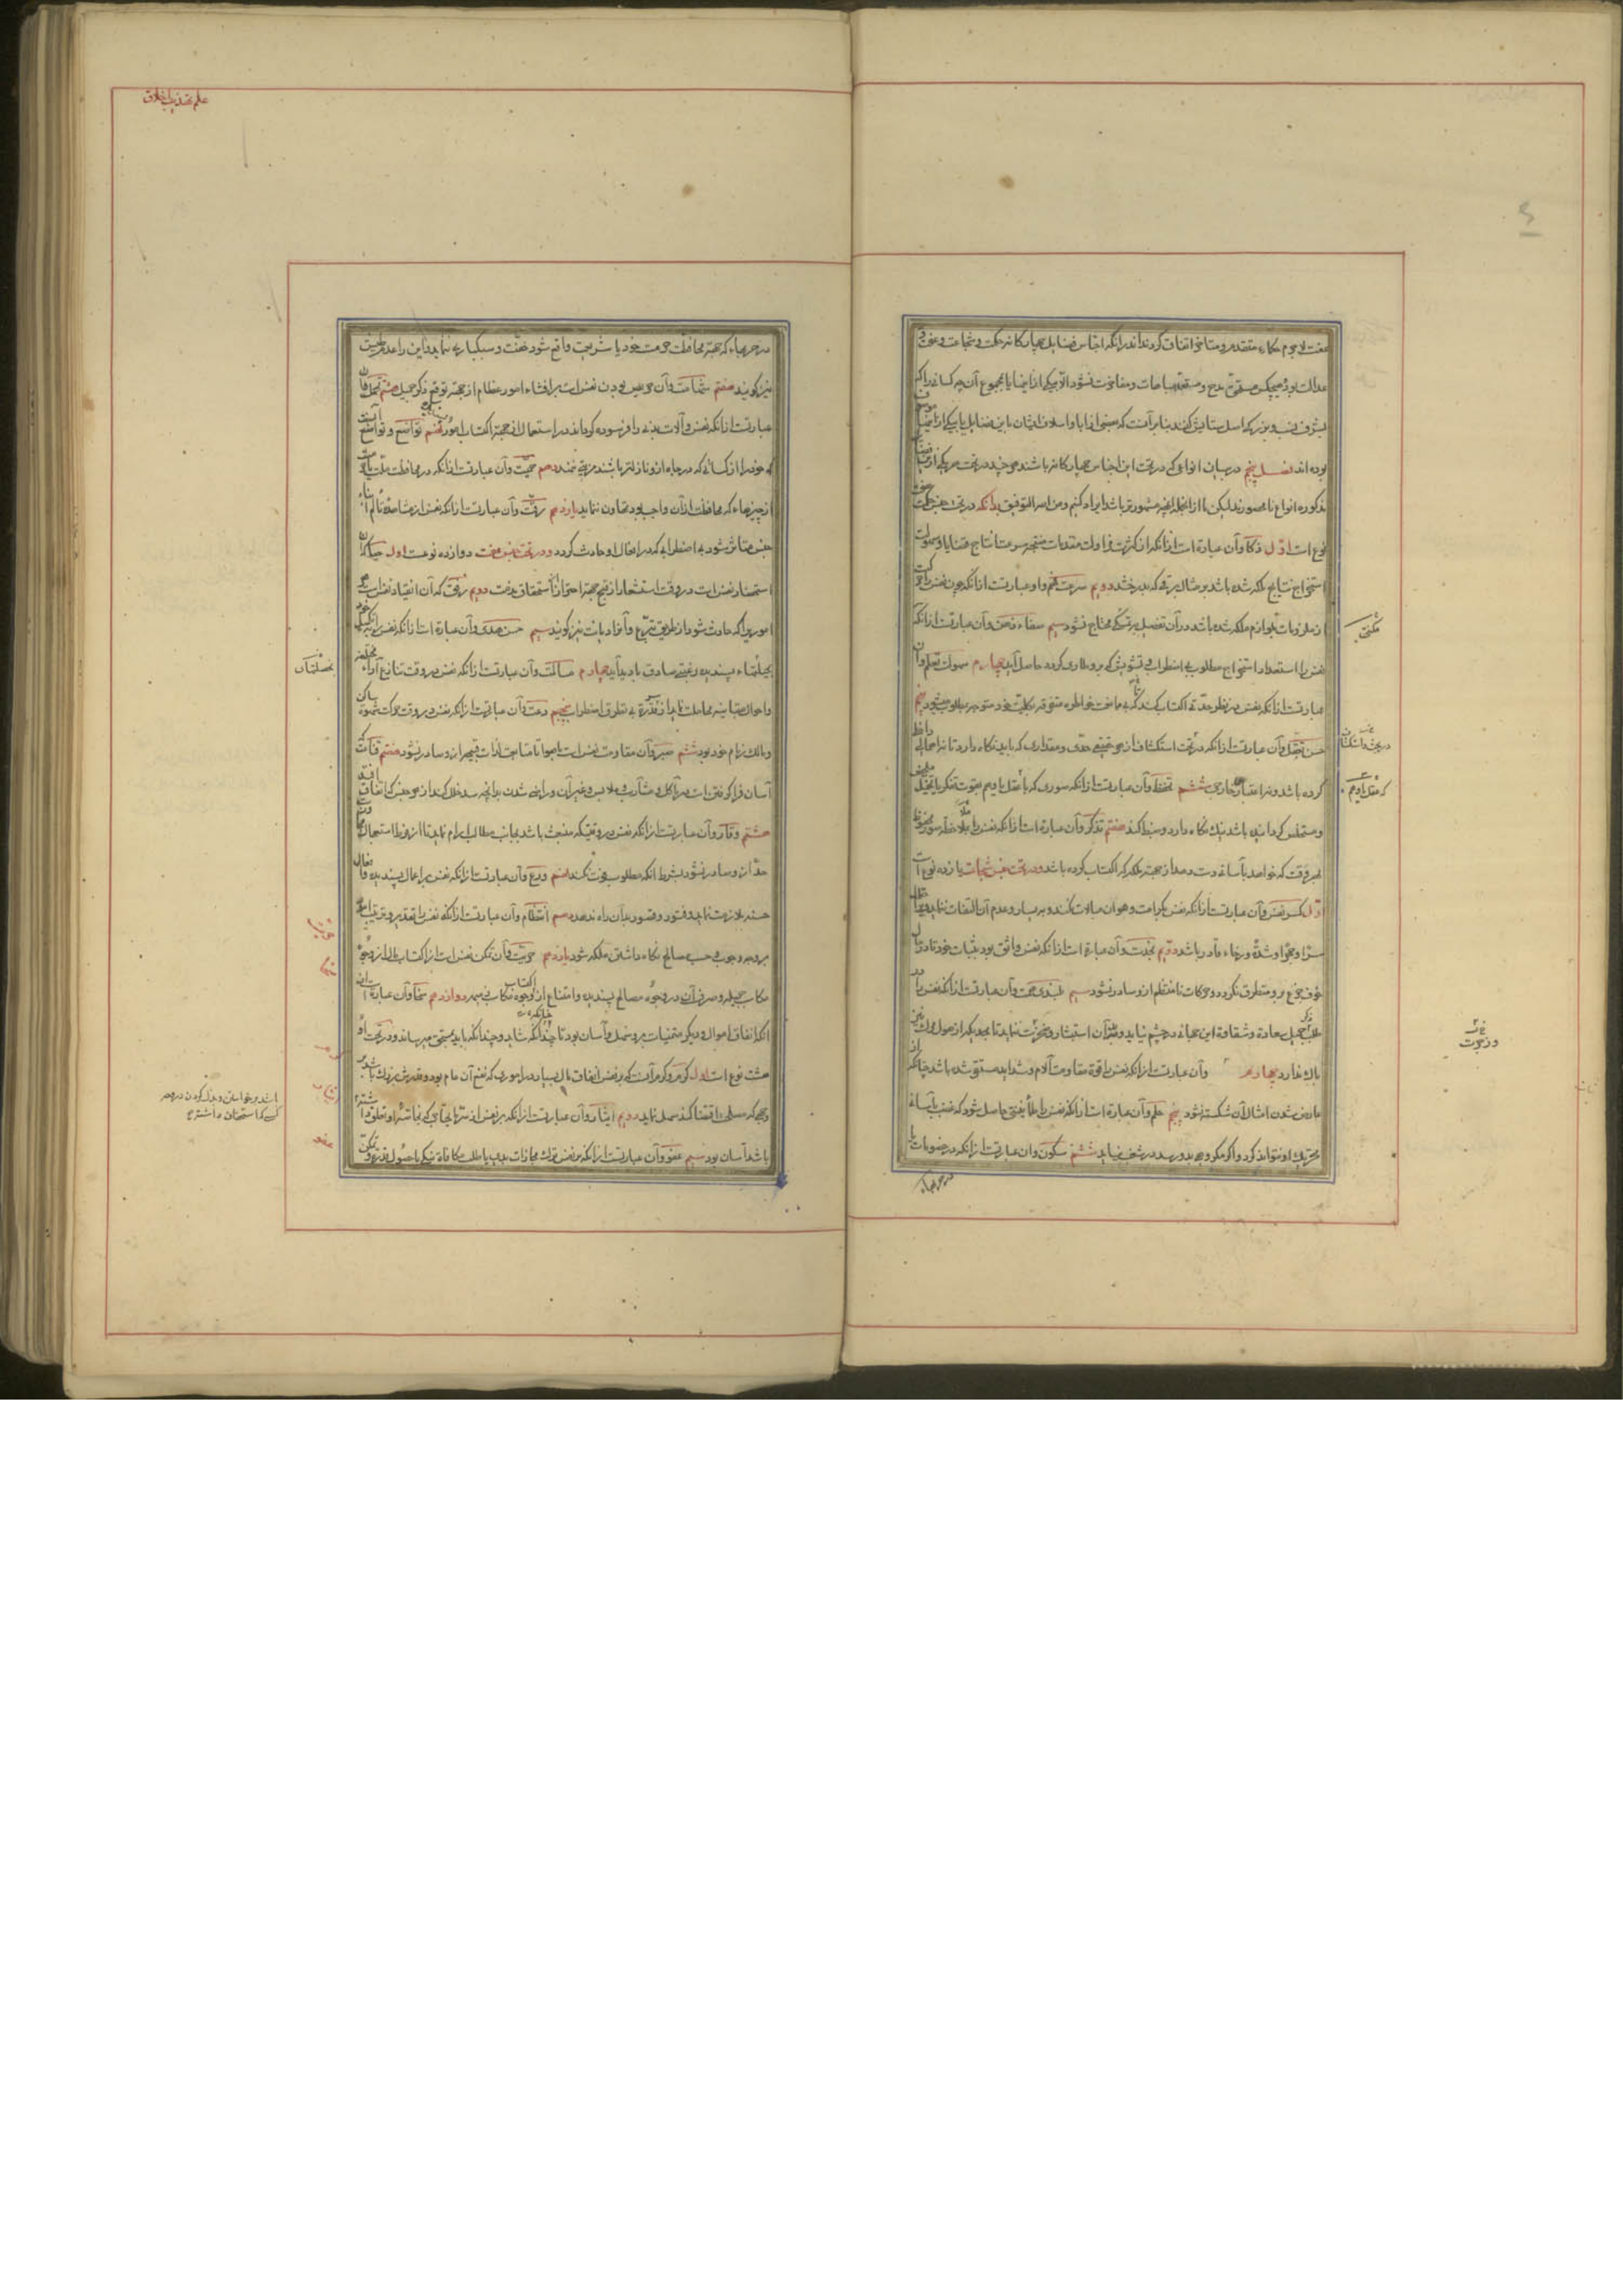 عفت لاجرم حکماء متقدم و متأخر اتفاق کرده‌اند در آنکه اجناس فضایل چهارگانه حکمت و شجاعت و عفت و
عدالت بود و هیچکس مستحق مدح و مستعد مباهات و مفاخرت نشود الا بیکی از اینها یا بمجموع آن چه کسانی را که
بشرف نسب و بزرگی اصل ستایش کنند بنابر آنست که بعضی از آبا و اسلاف ایشان باین فضایل یا بیکی از اینها موصوف
بوده‌اند فصل پنجم در بیان انواعی که در تحت این اجناس چهارگانه باشند هر چند در تحت هر یکی از اجناس
مذکوره انواع نامحصورند لیکن ما از انجمله انچه مشهورتر باشد ایراد کنیم و من الله التوفیق بدانکه در تحت جنس حکمت هفت
نوع است اول ذکا و آن عبارة است از انکه از کثرت مزاولت مقدمات منتجه سرعت انتاج قضایا و سهولت
استخراج نتایج ملکه شده باشد بر مثال برقی که بدرخشد دویم سرعت فهم و او عبارتست از انکه چون نفس را حرکت
از ملزومات بلوازم ملکه شده باشد در آن بفضل مکثی محتاج نشود سیم صفاء ذهن و آن عبارتست از انکه
نفس را استعداد استخراج مطلوب بی اضطراب و تشویش که برو طاری گردد حاصل آید چهارم سهولت تعلم و آن
عبارتست از انکه نفس در نظر حدتی اکتساب کند تا بی ممانعت خواطر متفرقه بکلیت خود متوجه مطلوب شود پنجم
حسن تعقل و آن عبارتست از انکه در بحث و استکشاف از هر حقیقتی حدی و مقداری که باید نگاه دارد تا نه اهمال داخلی
کرده باشد و نه اعتبار خارجی ششم تحفظ و آن عبارتست از انکه صوری که یا عقل یا وهم بقوت تفکر یا تخیل ملخص
و مستخلص گردانیده باشد نیک نگاه دارد و ضبط کند هفتم تذکر و آن عبارة است از انکه نفس را ملاحظه صور محفوظه
بهر وقت که خواهد بآسانی دست دهد از جهة ملکه که اکتساب کرده باشد و در تحت جنس شجاعت یازده نوع است
اول کبر نفس و آن عبارتست از انکه نفس بکرامت و هوان مبالات نکند و به یسار و عدم آن التفات ننماید
دویم نجدت و آن عبارة است از انکه نفس واثق بود بثبات خود تا در حال
خوف جزع برو متطرق نگردد و حرکات نامنتظم ازو صادر نشود سیم بلندی همت و آن عبارتست از انکه نفس را در
طلب جمیل سعادة و شقاوة این جهانی در چشم نیاید و بدان استبشار و ضجرت ننماید تا بحدیکه از هول مرگ نیز
باک ندارد چهارم و آن عبارتست از انکه نفس را قوة مقاومت آلام و شداید مستقر شده باشد چنانکه از
عارض شدن امثال آن شکسته نشود پنجم حلم و آن عبارة است از انکه نفس را طمأنینتی حاصل شود که غضب بآسانی
تحریک او نتواند کرد و اگر مکروهی بدو رسد در شغب نیاید ششم سکون و آن عبارتست از انکه در خصومات یا
در حربهاء
مکثی
در بحث و استکشاف
که عقل یا وهم
علم تهذیب اخلاق
در حربهاء که جهة محافظت حرمت خود یا شریعت واقع شود خفت و سبکساری ننماید و این را عدم طیش
نیز گویند هفتم شهامت و آن حریص بودن نفس است بر اقتناء امور عظام از جهة توقع ذکر جمیل هشتم تحمل و آن
عبارتست از انکه نفس آلات بدنی را فرسوده گرداند در استعمال از جهة اکتساب امور پسندیده نهم تواضع و تواضع آنست
که خود را از کسانی که در جاه ازو نازلتر باشند مزیتی ننهد دهم حمیت و آن عبارتست از انکه در محافظت ملت یا حرمت
از چیزهاء که محافظت از آن واجب بود تهاون ننماید یازدهم رقت و آن عبارتست از انکه نفس از مشاهده تألم ابناء
جنس متأثر شود بی اضطرابی که در افعال او حادث گردد و در تحت جنس عفت دوازده نوعست اول حیا که آن
انحصار نفس است در وقت استشعار از قبیح جهة احتراز از استحقاق مذمت دویم رفق که آن انقیاد نفس است
اموریرا که حادث شود از طریق تبرع و آنرا دماثت نیز گویند سیم حسن هدی و آن عبارة است از انکه نفس را بتکمیل خود
بحیلتهاء پسندیده رغبتی صادق پدید آید چهارم مسالمت و آن عبارتست از انکه نفس در وقت تنازع آراء مختلفه
و احوال متباینه مجاملت نماید از سر قدرة بی تطرق اضطراب پنجم دعت و آن عبارتست از انکه نفس در وقت حرکت شهوة ساکن
و مالک زمام خود بود ششم صبر و آن مقاومت نفس است با هوا تا متابعت لذات قبیحه ازو صادر نشود هفتم قناعت
آسان فرا گرفتن است در مآکل و مشارب و ملابس و غیر آن و راضی شدن بدانچه سد خلل کند از هر جنس که اتفاق افتد
هشتم وقار و آن عبارتست از انکه نفس در وقتیکه منبعث باشد بجانب مطالب آرام نماید تا از فرط استعجال مجاوزت
حد ازو صادر نشود بشرط انکه مطلوب فوت نکند نهم ورع و آن عبارتست از انکه نفس بر اعمال پسندیده و افعال
حسنه ملازمت نماید و فتور و قصور بدان راه ندهد دهم انتظام و آن عبارتست از انکه نفس را تقدیر و ترتیب امور
بر وجه وجوب و حسب مصالح نگاه داشتن ملکه شود یازدهم حریت و آن تمکن نفس است از اکتساب مال از وجوه
مکاسب جمیله و صرف آن در وجوه مصالح پسندیده و امتناع از اکتساب از وجوه مکاسب ذمیمه دوازدهم سخا و آن عبارة است از
انکه انفاق اموال و دیگر مقتنیات برو سهل و آسان بود تا چندانکه شاید و چندانکه باید بمستحق میرساند و در تحت او
هشت نوع است اول کرم و کرم آنست که بر نفس انفاق مال بسیار در اموری که نفع آن عام بود و قدرش بزرگ باشد بر
وجهی که مصلحت اقتضا کند سهل نماید دویم ایثار و آن عبارتست از انکه بر نفس از سر مایحتاجی که بخاصه او تعلق داشته
باشد آسان بود سیم عفو و آن عبارتست از انکه بر نفس ترک مجازات بدی یا طلب مکافاة نیکی با حصول قدرة و تمکن
بخصلتهاء
حریت
سخا
عفو
باشد برخواستن و بذل کردن در وجه
کسی که استحقاق داشته